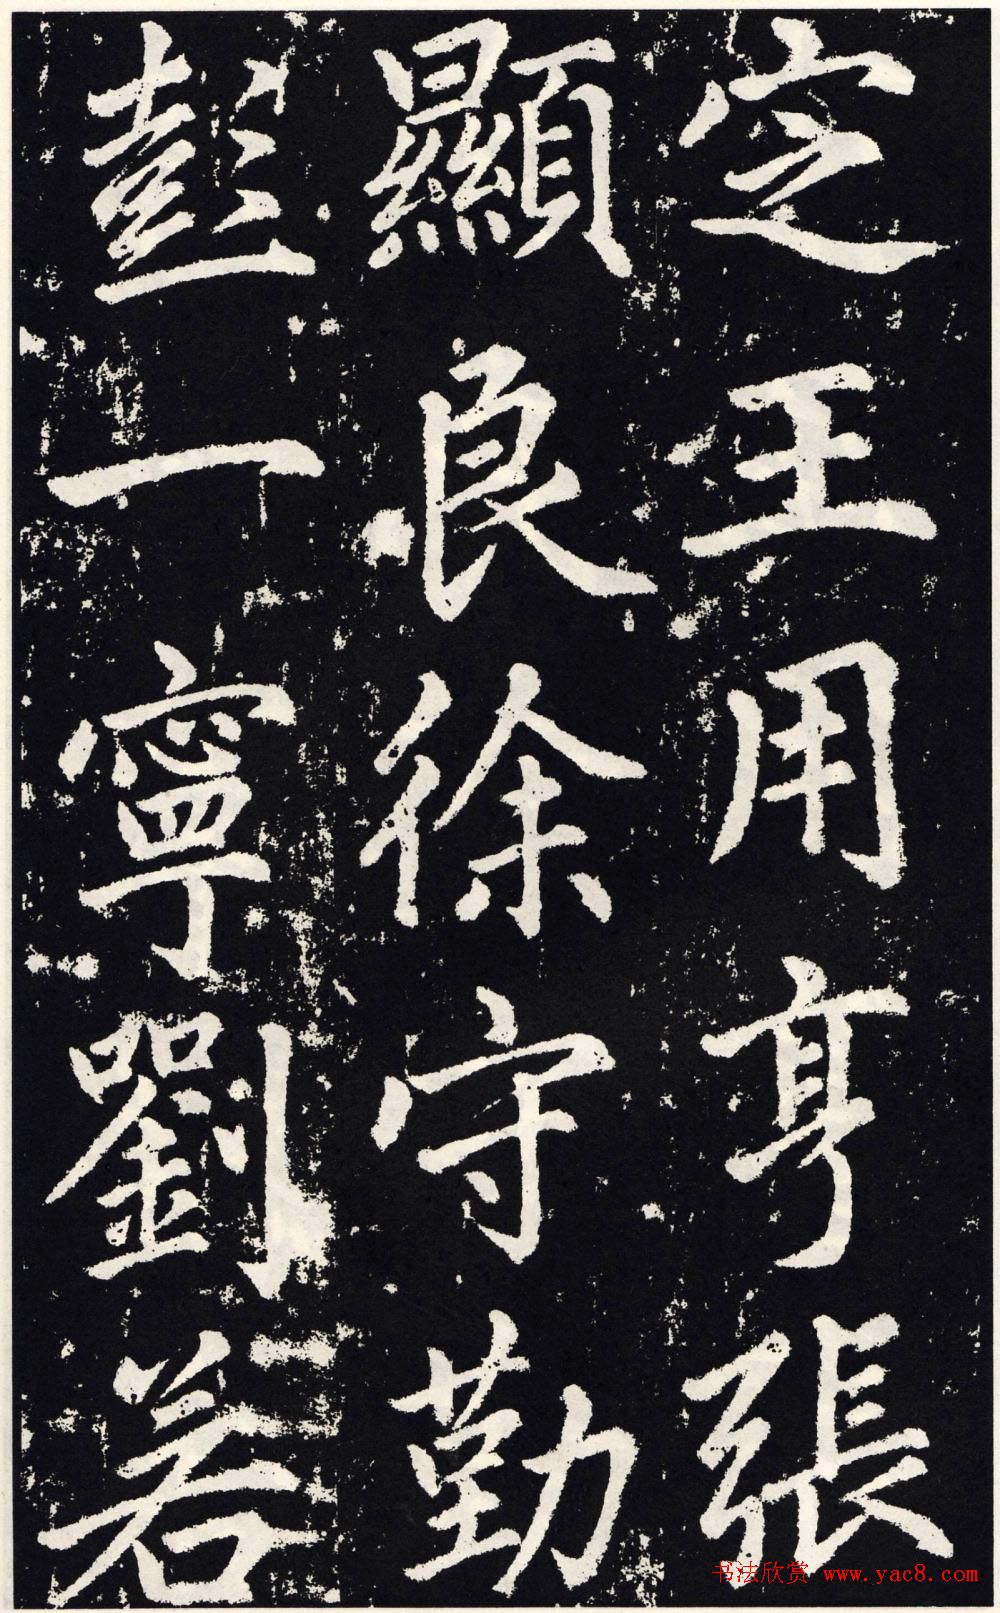 定王用亨張
顯良徐守勤
彭一寧劉若
书法欣赏 www.yac8.com